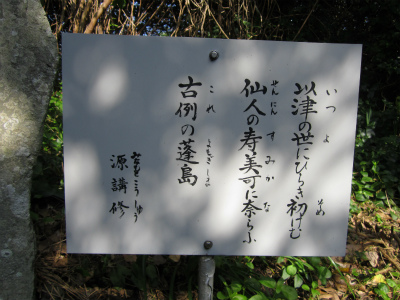 いつ よ め
以津の世にひらき初けむ
せんにん すみか な
仙人の寿美可に奈らふ
これ よもぎしま
古例の蓬島
こうしゅう
源講修